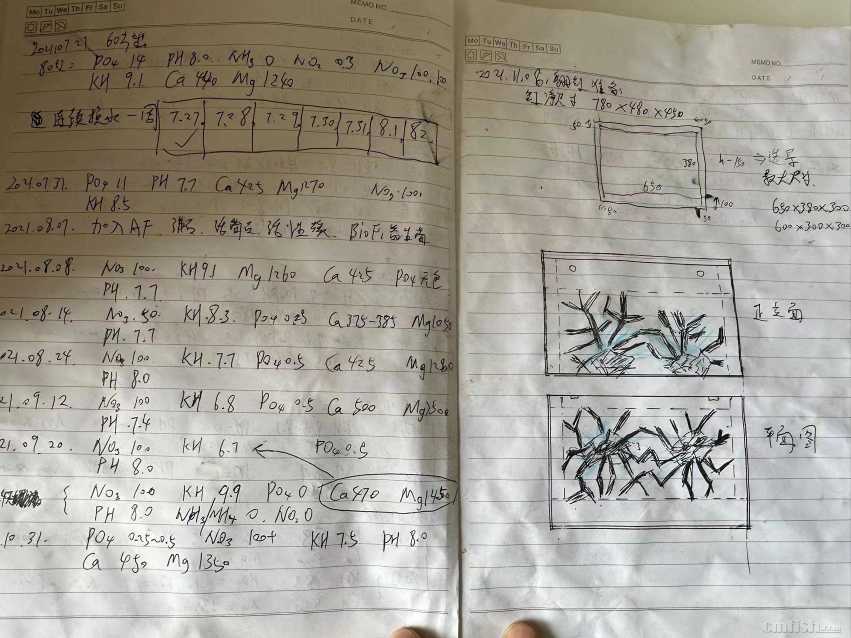 Mo Tu We Th Fr Sa Su
MEMO NO.
DATE
2021.07.27
80缸: PO4 14 PH 8.0 NH3 0 NO2 0.3 NO3 100,100
KH 9.1 Ca 440 Mg 1240
连续换水一周 7.27. 7.28. 7.29. 7.30. 7.31. 8.1. 8.2.
2021.07.31. PO4 11 PH 7.7 Ca 425 Mg 1270 NO3 100.
KH 8.5
2021.08.07. 加入AF.
2021.08.08. NO3 100. KH 9.1 Mg 1260 Ca 425 PO4 无色
PH. 7.7.
21.08.14. NO3. 50. KH. 8.3. Ca 375-385 Mg 1050
PH. 7.7
21.08.24. NO3 100 KH. 7.7 PO4 0.5 Ca 425 Mg 1280
PH 8.0
21.09.12. NO3 100 KH 6.8 PO4 0.5 Ca 500 Mg 1500
PH. 7.4
21.09.20. NO3 100 KH 6.7 PO4 0.5
PH 8.0
NO3 100 KH 9.9 PO4 0 Ca 470 Mg 1450
PH 8.0 NH3/NH4 0. NO2 0
10.31. PO4 0.25~0.5 NO3 100+ KH 7.5 PH 8.0
Ca 450 Mg 1350
Mo Tu We Th Fr Sa Su
MEMO NO.
DATE
2021.11.06. 翻缸准备.
缸净尺寸 780×480×450
380
650
100
50
最大尺寸.
650×380×300
600×300×300
正立面
平面图
cmfish.com